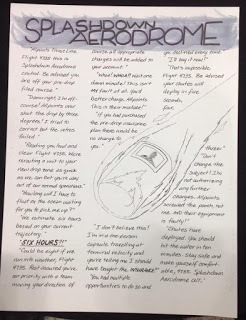 SPLASHDOWN
AERODROME
"Allpoints Travel Line
Flight #735 this is
Splashdown Aerodrome
control. Be advised you
are off your pre-drop
filed course."
"Damn right I'm off-
course! Allpoints
shut the drop by three
degrees! I tried to
correct but the retros
failed."
"Reading you loud and
clear Flight #735. We're
recruiting a unit to your
new drop zone as quick
as we can but you're way
out of our normal operations."
"You long will I have to
float in the ocean waiting
for you to pick me up?"
"We estimate six hours
based on your current
trajectory."
"SIX HOURS?!"
"Could be eight if we
run into weather, Flight
#735. Rest assured you're
on priority with a team
moving your direction. Of
course all appropriate
charges will be added to
your account."
"What? What? Wait one
damn minute! This isn't
my fault at all. You'd
better charge Allpoints.
This is their mistake!"
"If you had purchased
the pre-drop insurance
plan there would be
no charge to
you."
"I don't believe this!
I'm in a one-person
capsule travelling at
terminal velocity and
you're telling me I should
have bought the INSURANCE?"
"You had multiple
opportunities to do so and
you declined every time."
"I'll buy it now!"
"That's impossible
Flight #735. Be advised
your chutes will
deploy in five
seconds,
four,
three."
"Don't
change the
subject! I'm
not authorizing
any further
charges. Allpoints
screwed the points, not
me. Bill their equipment
to faulty!"
"Chutes have
deployed. You should
hit the water in ten
minutes. Stay safe and
make yourself comfort-
able, #735. Splashdown
Aerodrome, out."